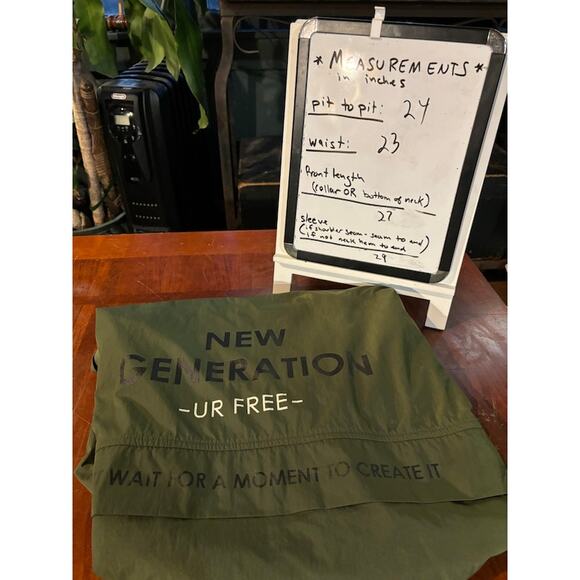 * MEASUREMENTS *
in inches
pit to pit: 24
waist: 23
front length
(collar OR bottom of neck)
27
sleeve
(if shoulder seam - seam to end)
if not neck hem to end
29
NEW
GENERATION
-UR FREE-
WAIT FOR A MOMENT TO CREATE IT